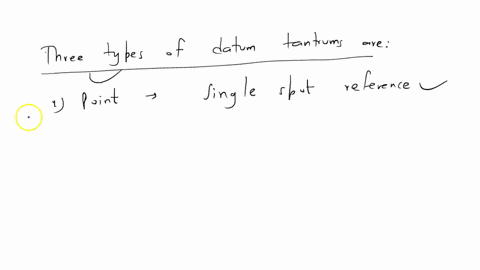 Three types of datum tantrums are:
1) Point → Single sput reference